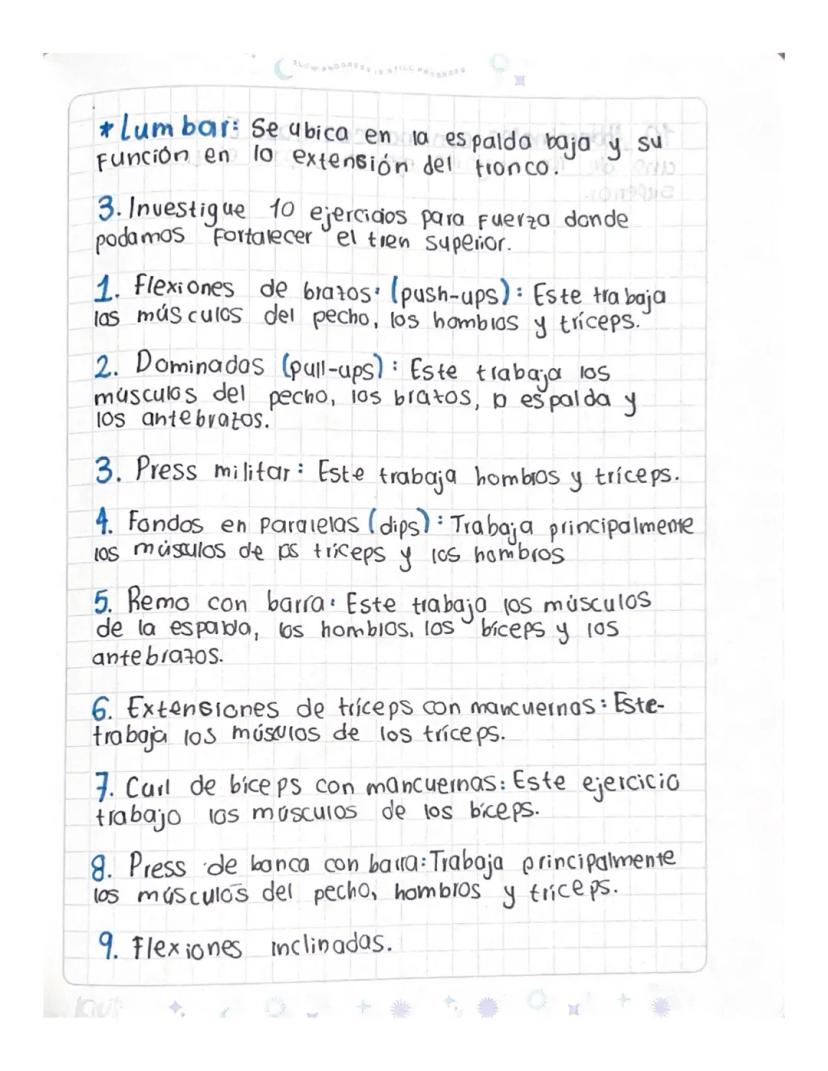 SLOW PROGRESS IS STILL PROGRESS
*Lumbar: Se ubica en la espalda baja y su
Función en la extensión del tronco.
3. Investigue 10 ejercicios para fuerza donde
podamos Fortalecer el tren superior.
1. Flexiones de brazos: (push-ups): Este trabaja
los músculos del pecho, los hombros y tríceps.
2. Dominadas (pull-ups): Este trabaja los
músculos del pecho, los brazos, la espalda y
los antebrazos.
3. Press militar: Este trabaja hombros y tríceps.
4. Fondos en Paralelas (dips): Trabaja principalmente
los músulos de los tríceps y los hombros
5. Remo con barra: Este trabaja los músculos
de la espalda, los hombros, los bíceps y los
antebrazos.
6. Extensiones de tríceps con mancuernas: Este-
trabaja los músulos de los tríceps.
7. Curl de bíceps con mancuernas: Este ejercicio
trabajo los músculos de los bíceps.
8. Press de banca con barra: Trabaja principalmente
los músculos del pecho, hombros y tríceps.
9. Flexiones inclinadas.